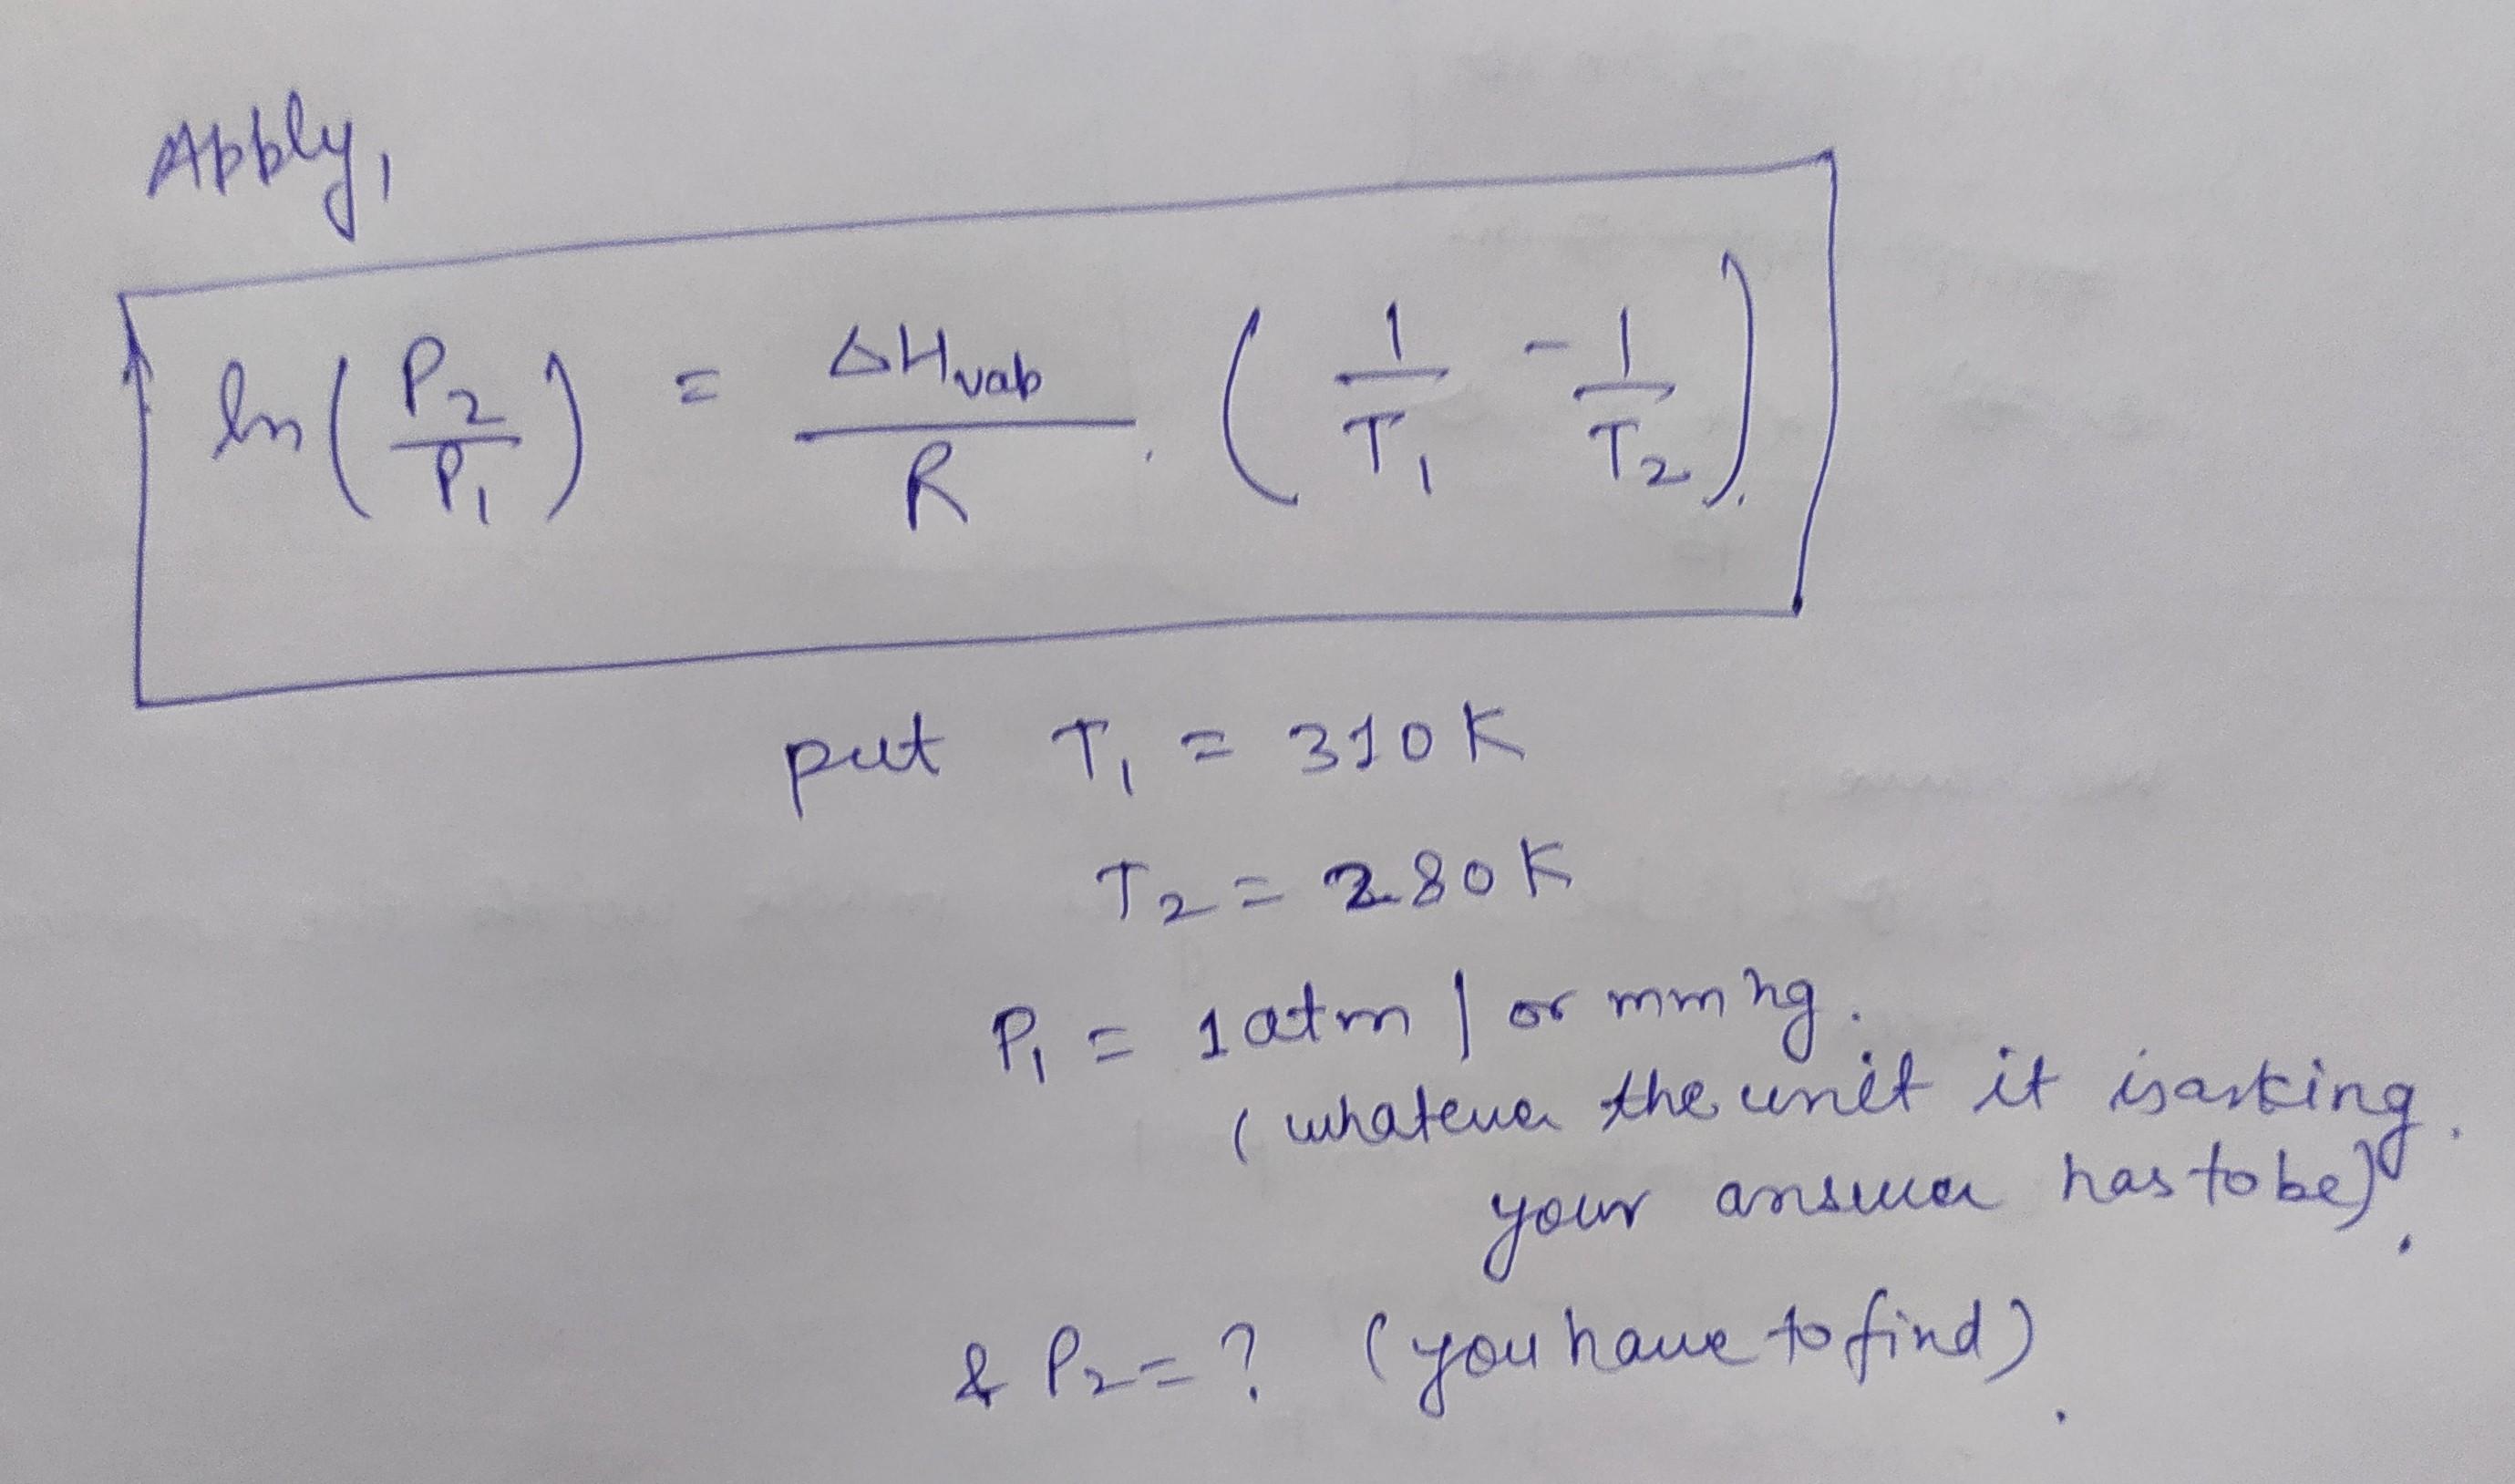 Apply,
ln(P₂/P₁) = ΔHvap/R · (1/T₁ - 1/T₂).
put T₁ = 310K
T₂ = 280K
P₁ = 1atm / or mm hg.
(whatever the unit it is asking.
your answer has to be).
& P₂ = ? (you have to find).